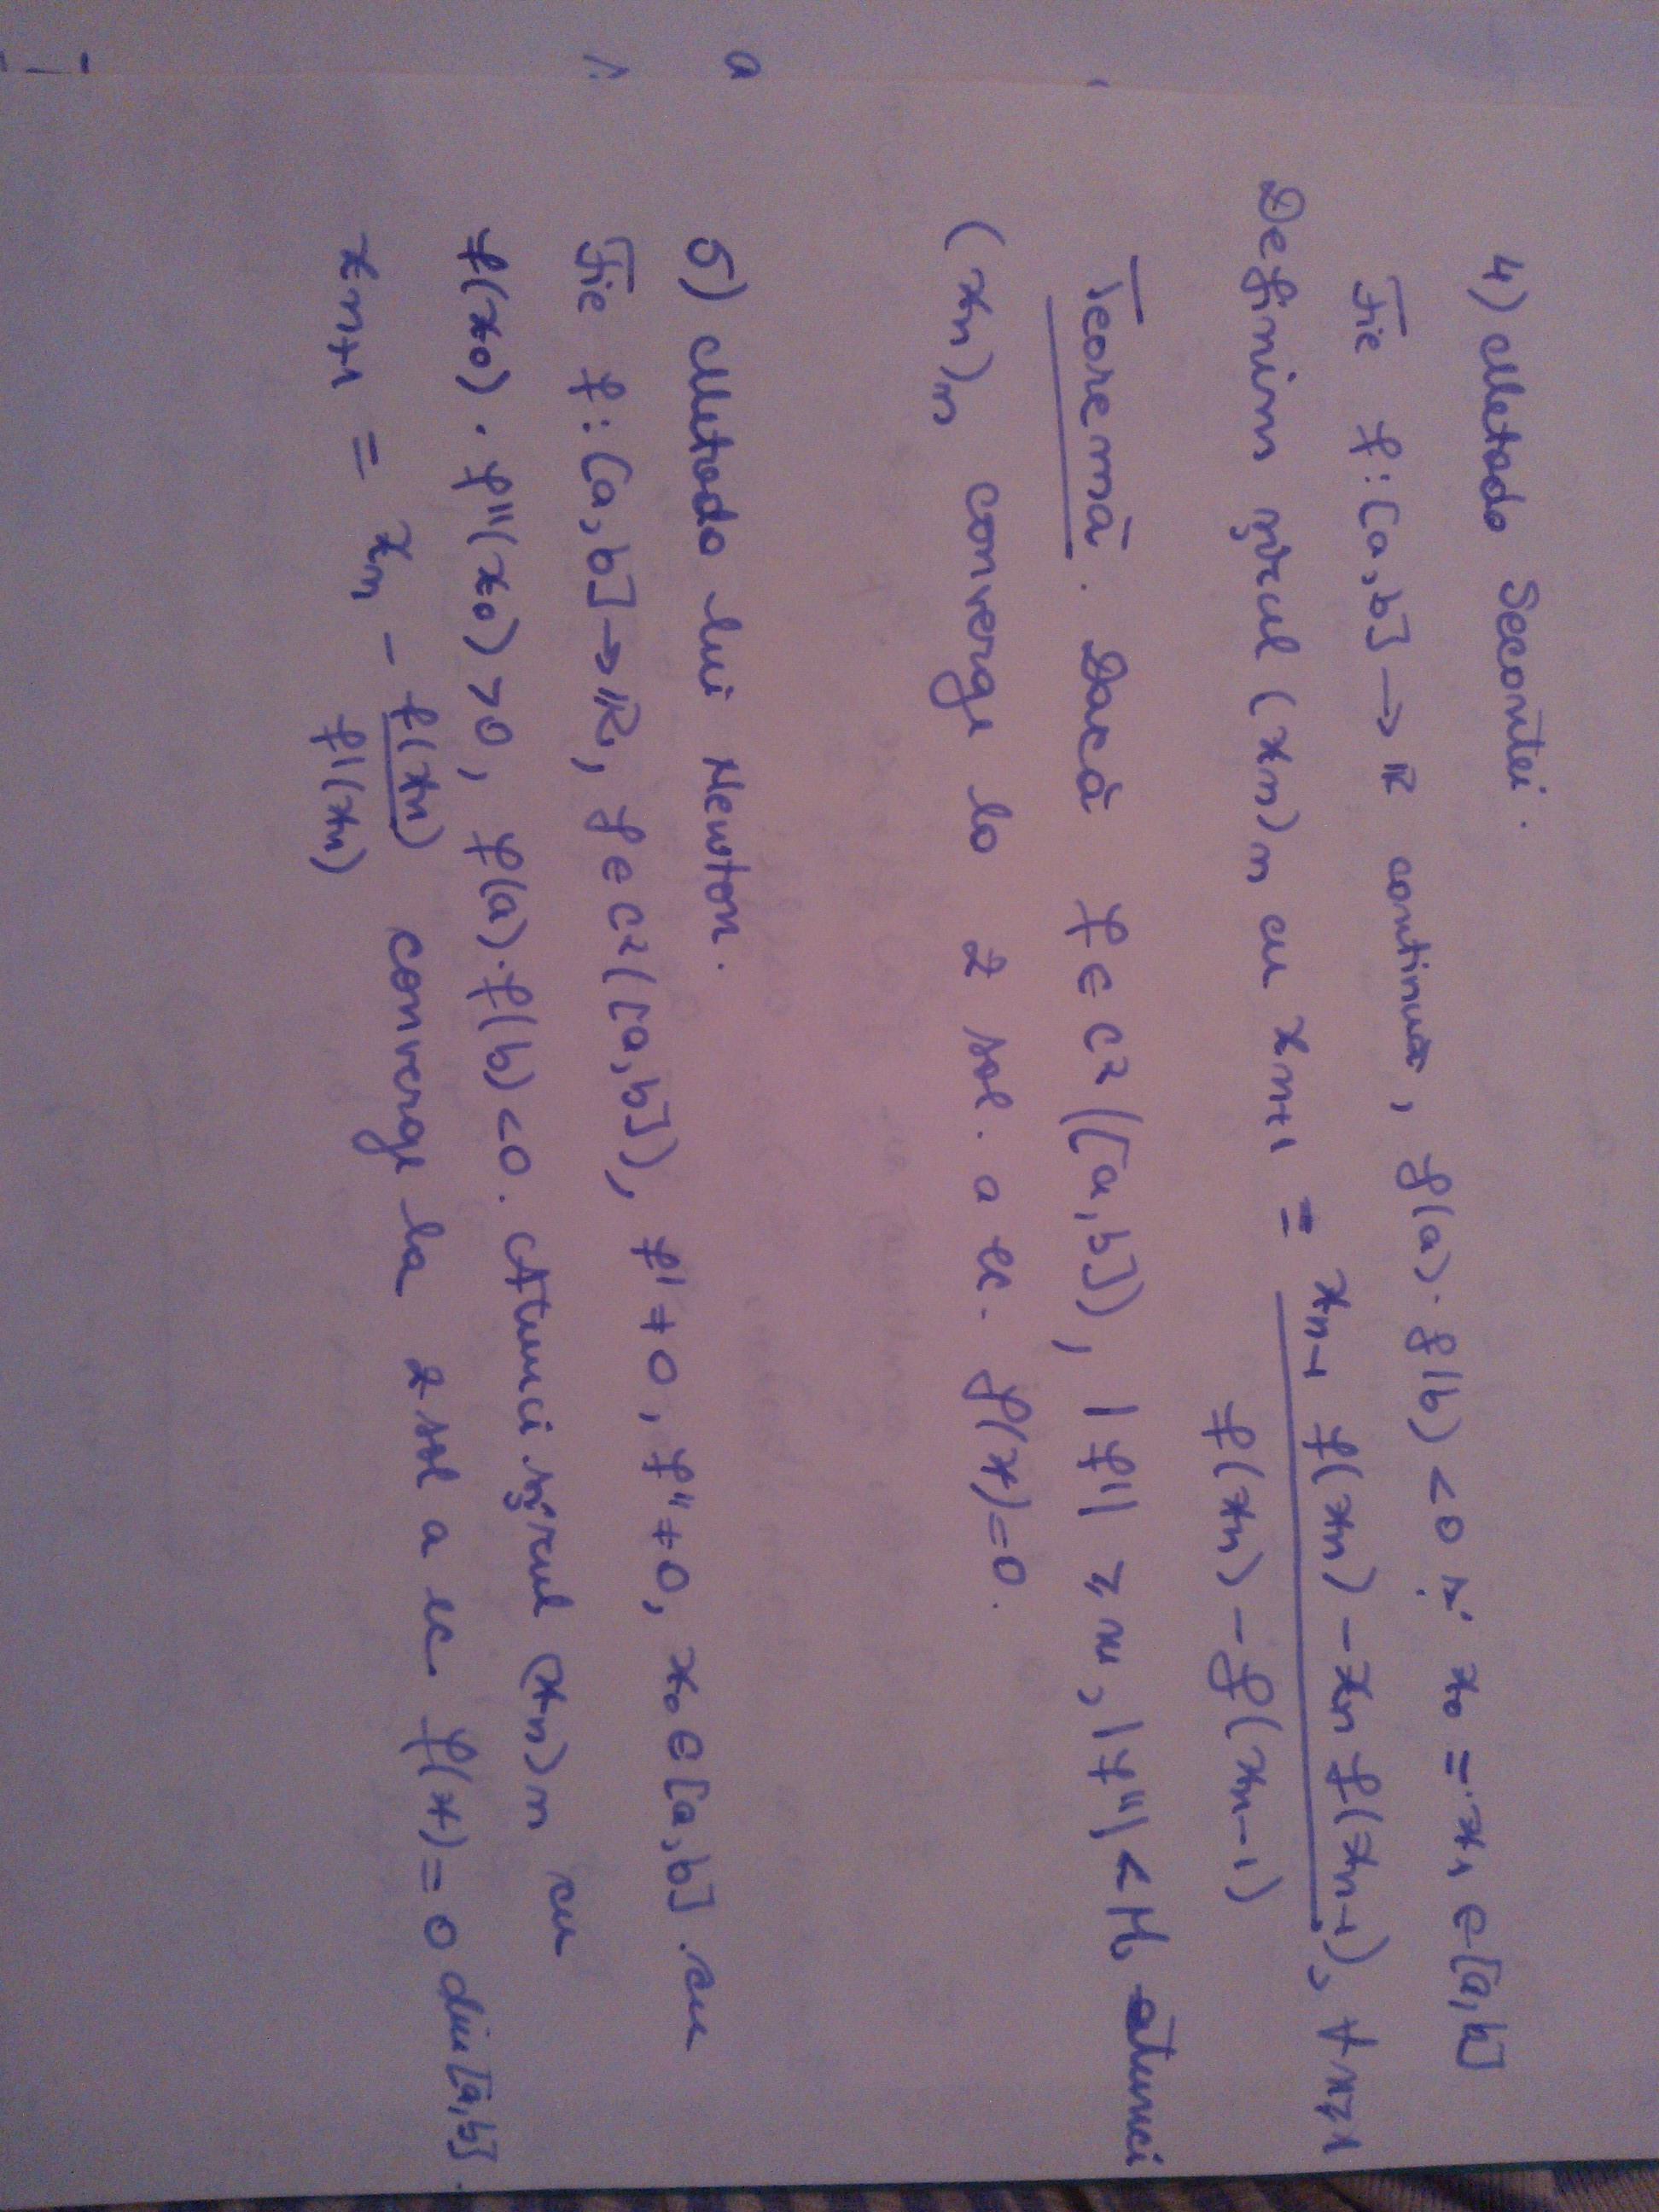 4) Metoda Secantei.
Fie f: [a,b] → ℝ continuă, f(a)·f(b) < 0 și x₀ = x₁ ∈ [a,b]
Definim șirul (xn)n cu xn+1 = (xn-1 f(xn) - xn f(xn-1)) / (f(xn) - f(xn-1)), ∀ n≥1
Teoremă. Dacă f ∈ C²([a,b]), |f'| ≥ m, |f''| < M, atunci
(xn)n converge la 2 sol. a ec. f(x)=0.
5) Metoda lui Newton.
Fie f: [a,b] → ℝ, f ∈ C²([a,b]), f' ≠ 0, f'' ≠ 0, x₀ ∈ [a,b] cu
f(x₀)·f''(x₀) > 0, f(a)·f(b) < 0. Atunci șirul (xn)n cu
xn+1 = xn - f(xn) / f'(xn) converge la 2 sol a ec. f(x) = 0 din [a,b].
a